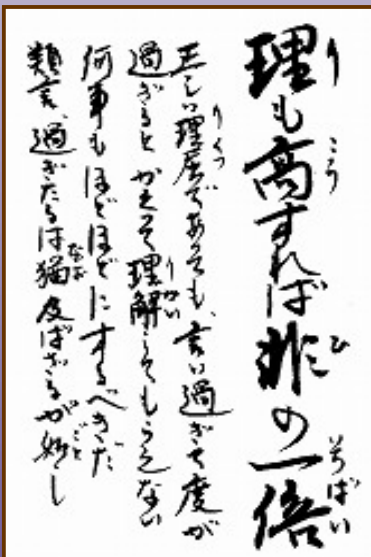 理も高ずれば非の一倍
正しい理屈であっても、言い過ぎて度が
過ぎると かえって理解してもらえない
何事もほどほどにするべきだ
類言、過ぎたるは猶及ばざるが如し